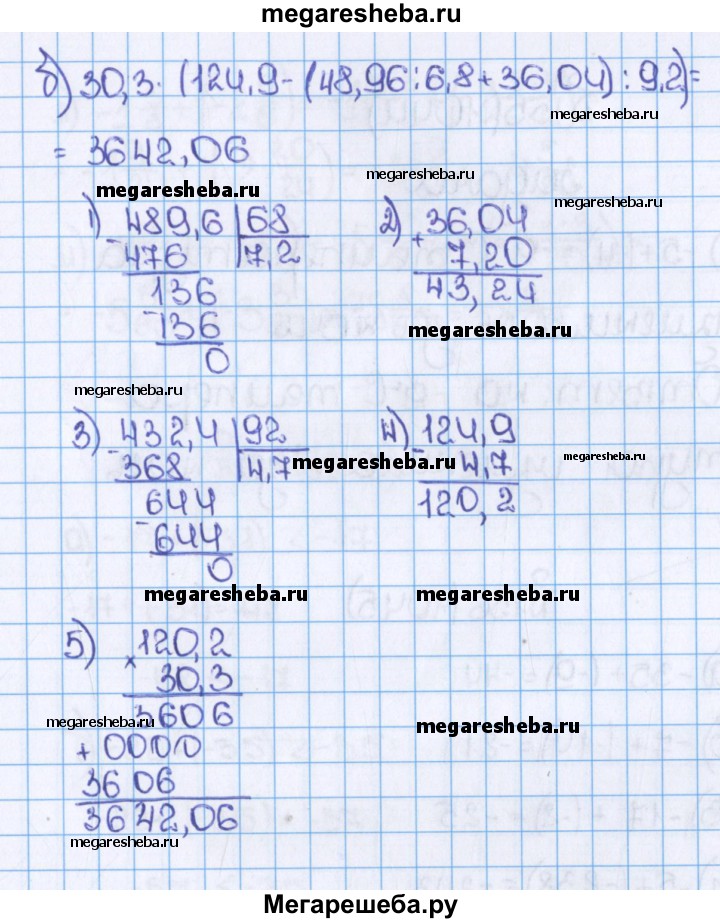 megaresheba.ru
б) 30,3 · (124,9 - (48,96 : 6,8 + 36,04) : 9,2) =
megaresheba.ru
= 3642,06
megaresheba.ru
megaresheba.ru
megaresheba.ru
1) - 489,6 | 68
476 | 7,2
136
- 136
0
2) 36,04
+ 7,20
43,24
megaresheba.ru
megaresheba.ru
3) - 432,4 | 92
368 | 4,7
644
- 644
0
megaresheba.ru
4) - 124,9
4,7
120,2
megaresheba.ru
megaresheba.ru
megaresheba.ru
5) × 120,2
30,3
3606
+ 0000
3606
3642,06
megaresheba.ru
megaresheba.ru
megaresheba.ru
Мегарешеба.ру